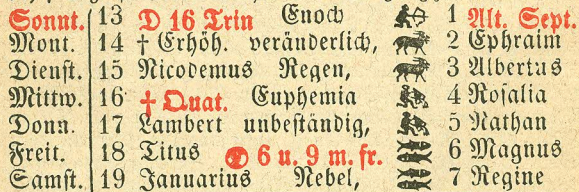 Sonnt. 13 D 16 Trin Enoch 1 Alt. Sept.
Mont. 14 † Erhöh. veränderlich, 2 Ephraim
Dienst. 15 Nicodemus Regen, 3 Albertus
Mittw. 16 † Quat. Euphemia 4 Rosalia
Donn. 17 Lambert unbeständig, 5 Nathan
Freit. 18 Titus 6 u. 9 m. fr. 6 Magnus
Samst. 19 Januarius Nebel, 7 Regine